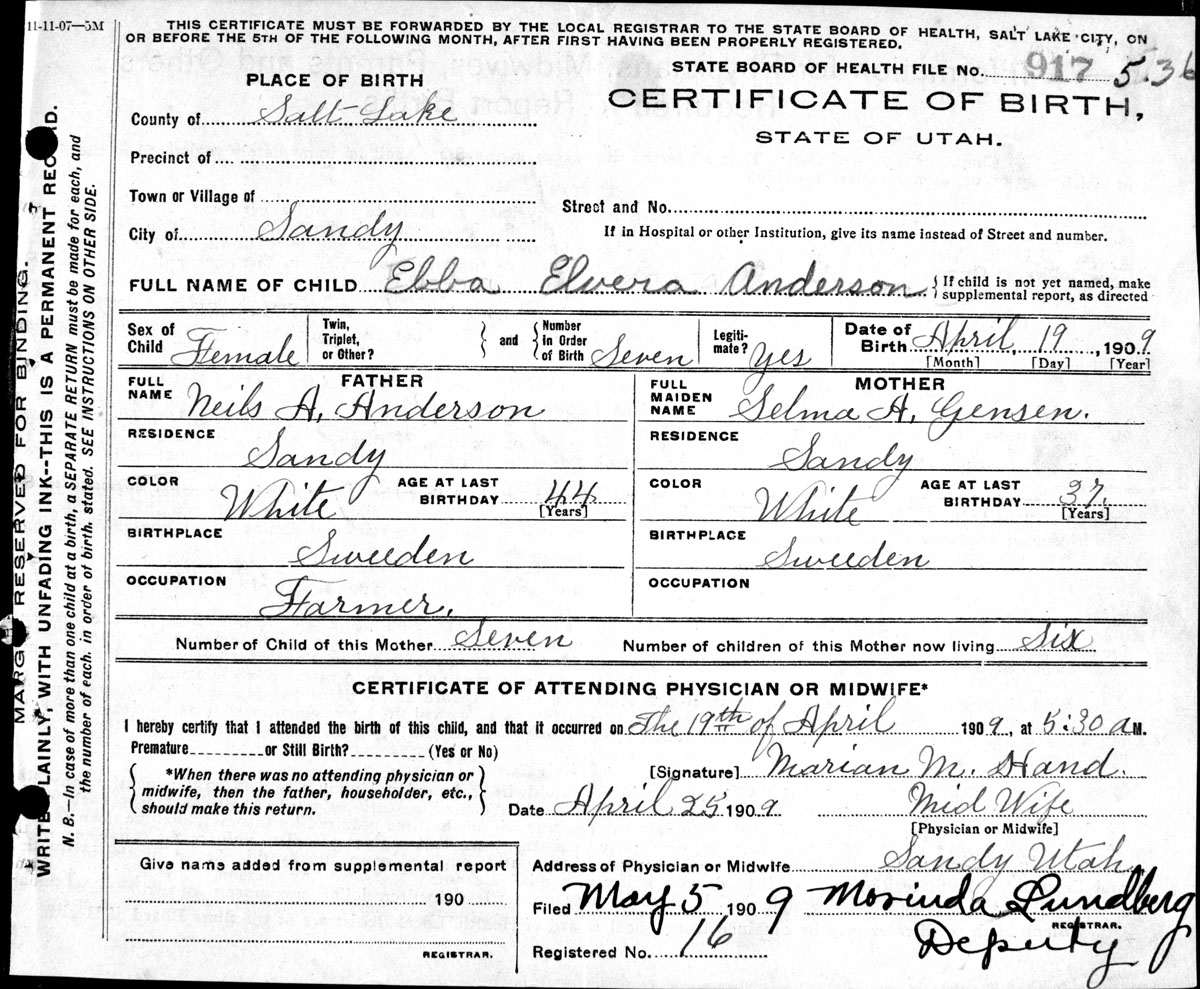 11-11-07—5M
THIS CERTIFICATE MUST BE FORWARDED BY THE LOCAL REGISTRAR TO THE STATE BOARD OF HEALTH, SALT LAKE CITY, ON
OR BEFORE THE 5TH OF THE FOLLOWING MONTH, AFTER FIRST HAVING BEEN PROPERLY REGISTERED.
STATE BOARD OF HEALTH FILE No. 917 536
CERTIFICATE OF BIRTH,
STATE OF UTAH.
PLACE OF BIRTH
County of Salt Lake
Precinct of
Town or Village of
City of Sandy
Street and No.
If in Hospital or other Institution, give its name instead of Street and number.
FULL NAME OF CHILD Ebba Elvera Anderson { If child is not yet named, make
supplemental report, as directed
Sex of Child Female
Twin, Triplet, or Other?
and
Number in Order of Birth Seven
Legitimate? Yes
Date of Birth April, 19, 1909
[Month] [Day] [Year]
FATHER
FULL NAME Neils A. Anderson
RESIDENCE Sandy
COLOR White AGE AT LAST BIRTHDAY 44
[Years]
BIRTHPLACE Sweeden
OCCUPATION Farmer.
MOTHER
FULL MAIDEN NAME Selma A. Gensen.
RESIDENCE Sandy
COLOR White AGE AT LAST BIRTHDAY 37.
[Years]
BIRTHPLACE Sweeden
OCCUPATION
Number of Child of this Mother Seven Number of children of this Mother now living Six
CERTIFICATE OF ATTENDING PHYSICIAN OR MIDWIFE*
I hereby certify that I attended the birth of this child, and that it occurred on The 19th of April 1909, at 5:30 a M.
Premature or Still Birth? (Yes or No)
{ *When there was no attending physician or
midwife, then the father, householder, etc.,
should make this return. }
[Signature] Marian M. Hand.
Date April 25 1909 Mid Wife
[Physician or Midwife]
Address of Physician or Midwife Sandy Utah
Give name added from supplemental report
190
REGISTRAR.
Filed May 5 1909 Morinda Lundberg
REGISTRAR.
Deputy
Registered No. 16
MARGIN RESERVED FOR BINDING.
WRITE PLAINLY, WITH UNFADING INK--THIS IS A PERMANENT RECORD.
N. B.—In case of more than one child at a birth, a SEPARATE RETURN must be made for each, and
the number of each, in order of birth, stated. SEE INSTRUCTIONS ON OTHER SIDE.